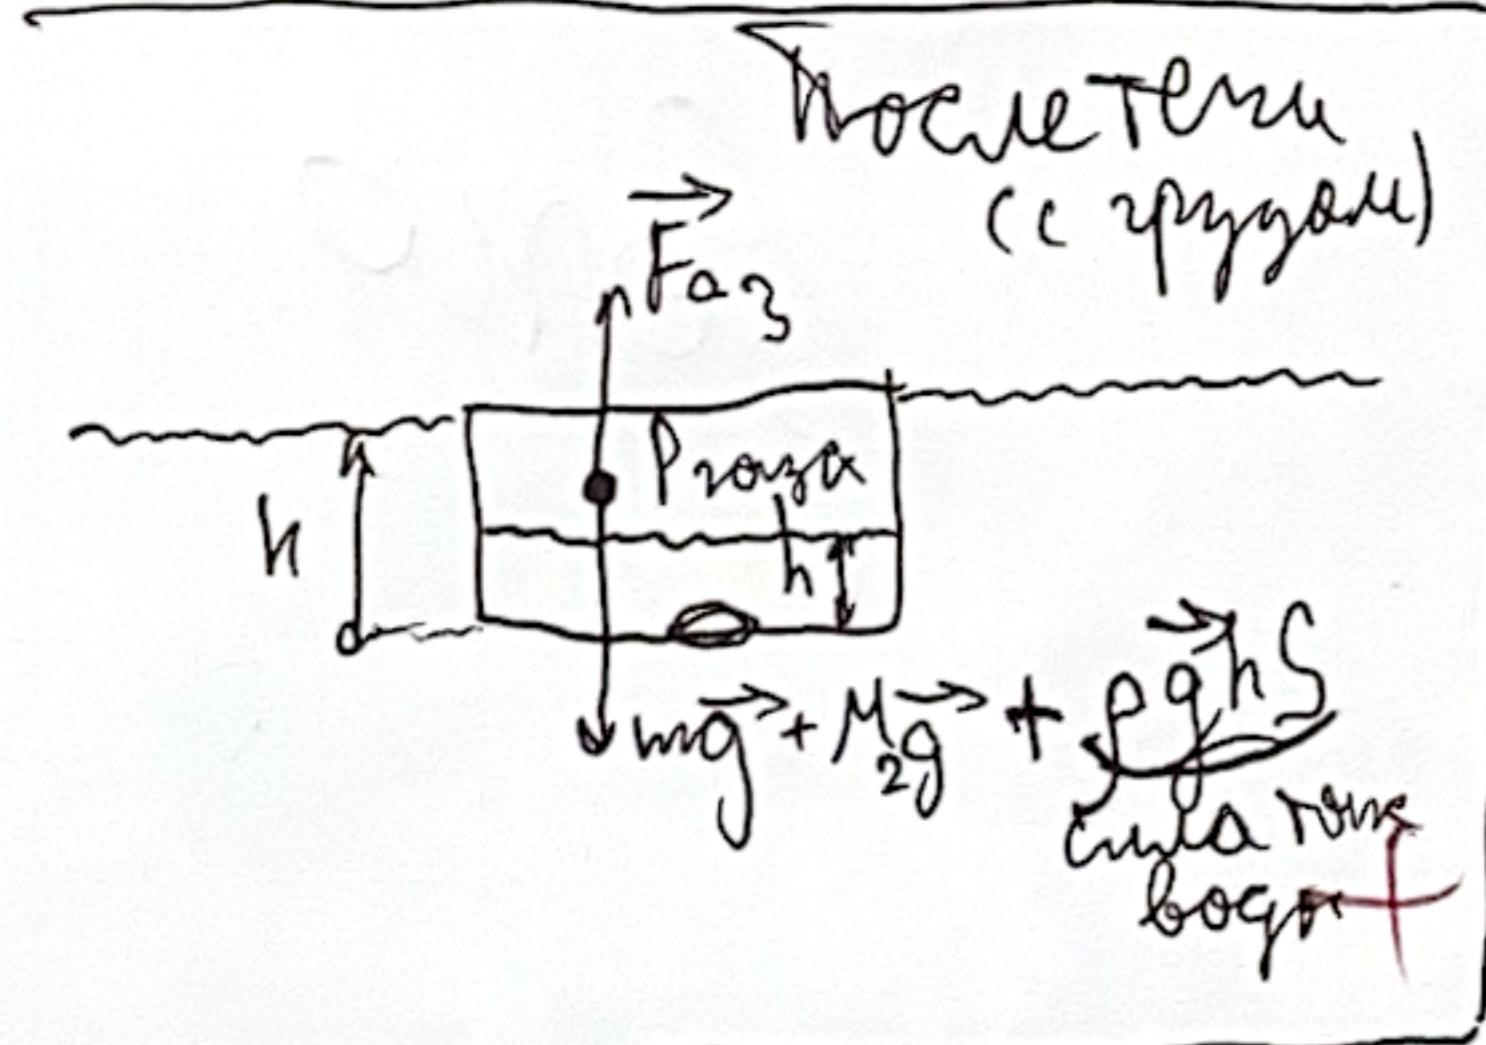 После течи
(с грузом)
Fa₃
Pгаза
h
h
mg + M₂g + ρghS
сила тяж
воды